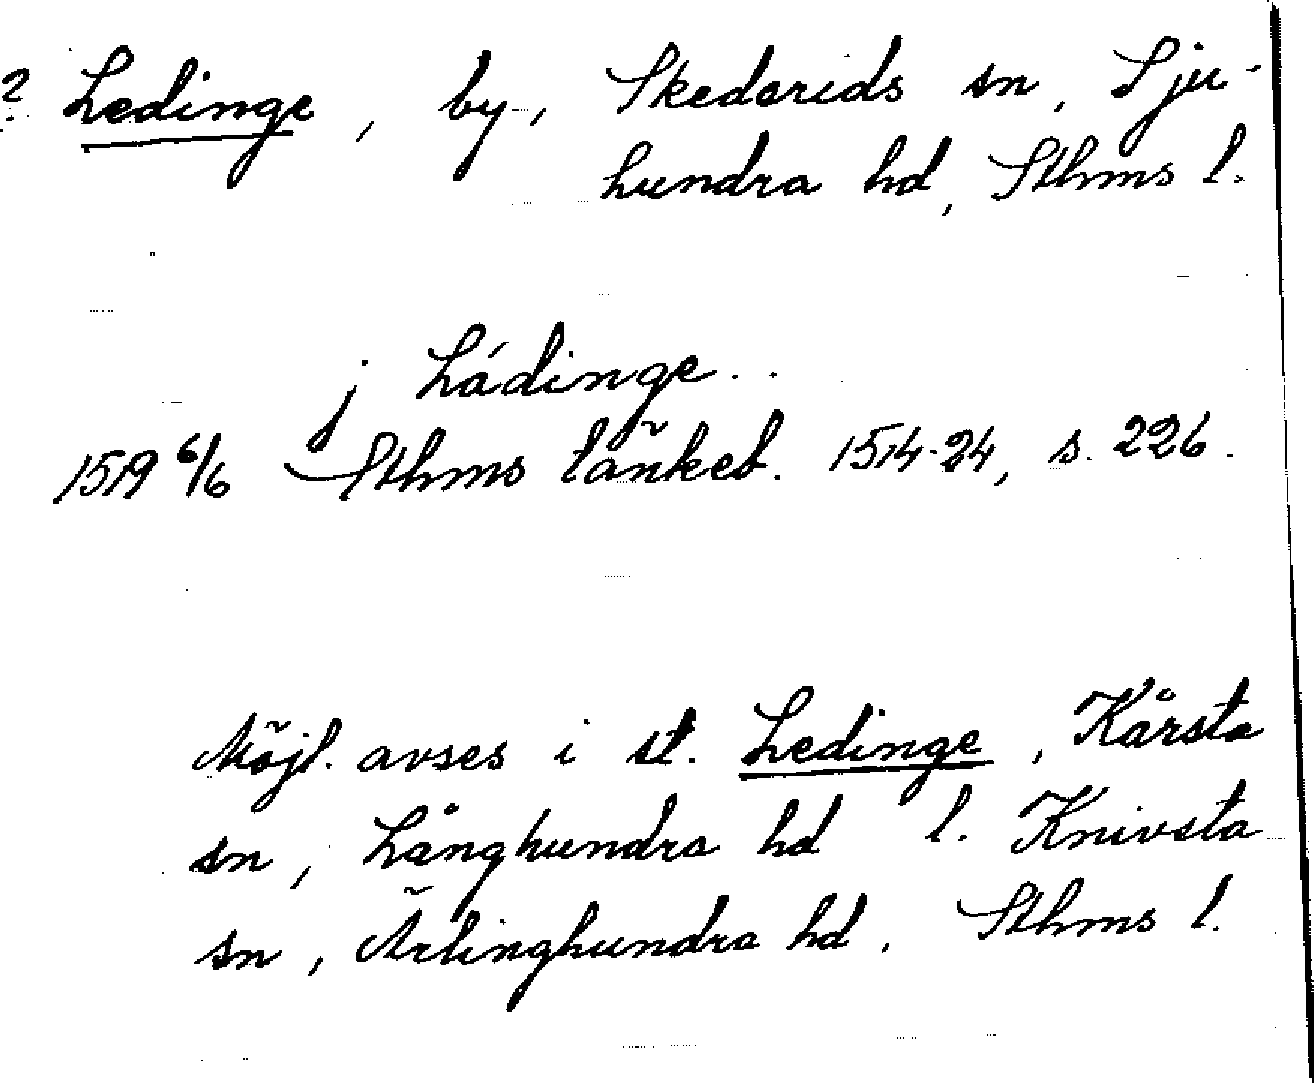 ? Ledinge, by, Skederids sn, Sju-
hundra hd, Sthms l.
j Ládinge..
1519 6/6 Sthms tänkeb. 1514-24, s. 226.
Möjl. avses i st. Ledinge, Kårsta
sn, Långhundra hd l. Knivsta
sn, Ärlinghundra hd, Sthms l.